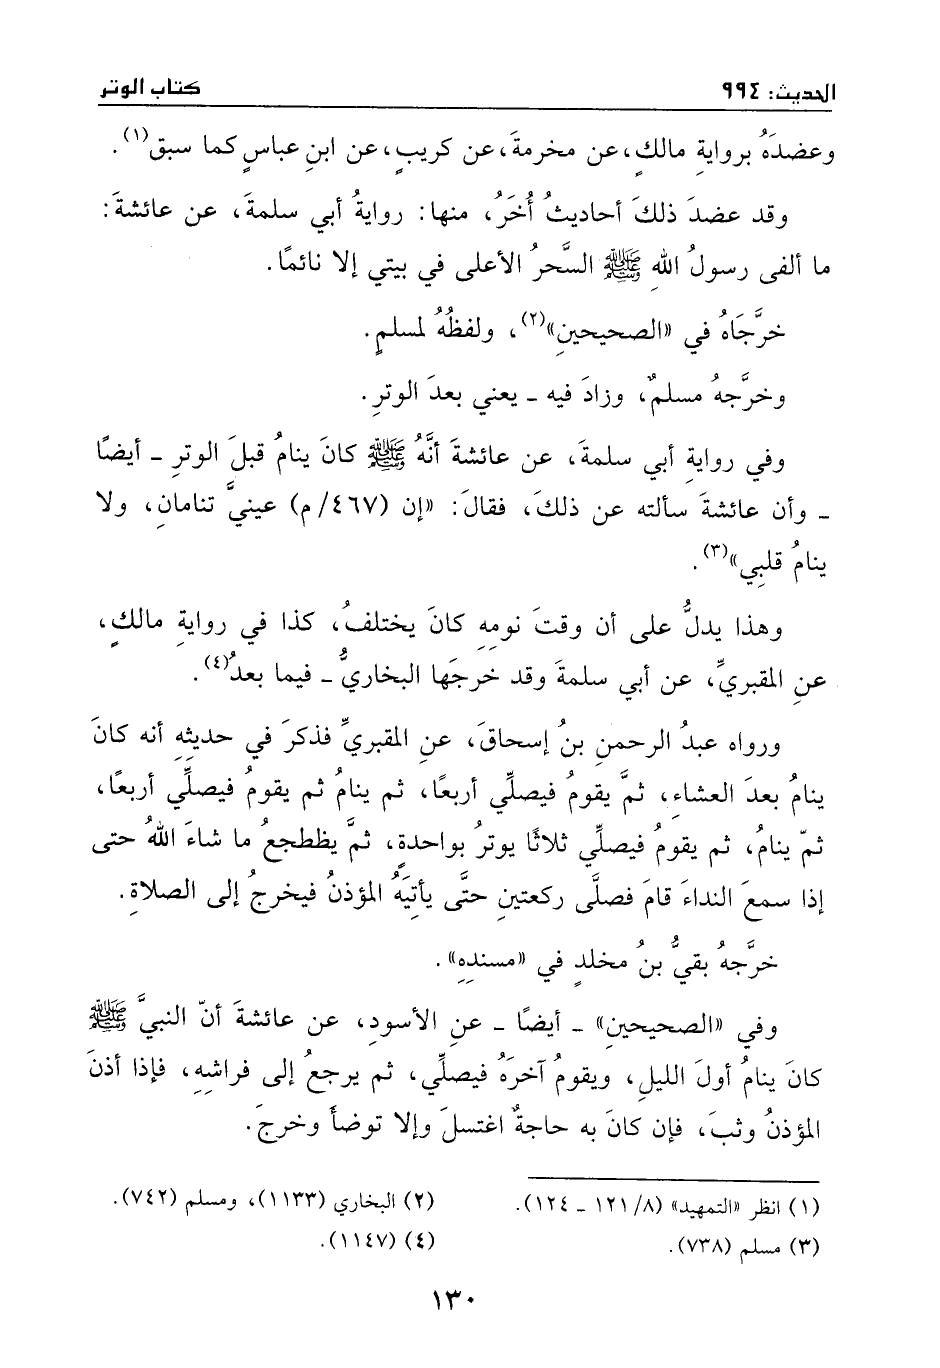 الحديث: ٩٩٤ كتاب الوتر
وعضدَهُ بروايةِ مالكٍ، عن مخرمةَ، عن كريبٍ، عن ابنِ عباسٍ كما سبق(١).
وقد عضدَ ذلكَ أحاديثُ أُخَرُ، منها: روايةُ أبي سلمةَ، عن عائشةَ:
ما ألفى رسولُ اللهِ ﷺ السَّحرُ الأعلى في بيتي إلا نائمًا.
خرَّجَاهُ في «الصحيحينِ»(٢)، ولفظُهُ لمسلمٍ.
وخرَّجهُ مسلمٌ، وزادَ فيه ـ يعني بعدَ الوترِ.
وفي روايةِ أبي سلمةَ، عن عائشةَ أنَّهُ ﷺ كانَ ينامُ قبلَ الوترِ ـ أيضًا
ـ وأن عائشةَ سألته عن ذلكَ، فقالَ: «إن (٤٦٧/ م) عينيَّ تنامانِ، ولا
ينامُ قلبِي»(٣).
وهذا يدلُّ على أن وقتَ نومِهِ كانَ يختلفُ، كذا في روايةِ مالكٍ،
عنِ المقبريِّ، عن أبي سلمةَ وقد خرجَها البخاريُّ ـ فيما بعدُ(٤).
ورواه عبدُ الرحمنِ بنُ إسحاقَ، عنِ المقبريِّ فذكرَ في حديثِهِ أنه كانَ
ينامُ بعدَ العشاءِ، ثمَّ يقومُ فيصلِّي أربعًا، ثم ينامُ ثم يقومُ فيصلِّي أربعًا،
ثمّ ينامُ، ثم يقومُ فيصلِّي ثلاثًا يوترُ بواحدةٍ، ثمَّ يظطجعُ ما شاءَ اللهُ حتى
إذا سمعَ النداءَ قامَ فصلَّى ركعتينِ حتَّى يأتِيَهُ المؤذنُ فيخرجُ إلى الصلاةِ.
خرَّجهُ بقيُّ بنُ مخلدٍ في «مسندِهِ».
وفي «الصحيحينِ» ـ أيضًا ـ عنِ الأسودِ، عن عائشةَ أنّ النبيَّ ﷺ
كانَ ينامُ أولَ الليلِ، ويقومُ آخرَهُ فيصلِّي، ثم يرجعُ إلى فراشِهِ، فإذا أذنَ
المؤذنُ وثبَ، فإن كانَ به حاجةٌ اغتسلَ وإلا توضأَ وخرجَ.
(١) انظر «التمهيد» (٨/ ١٢١ ـ ١٢٤). (٢) البخاري (١١٣٣)، ومسلم (٧٤٢).
(٣) مسلم (٧٣٨). (٤) (١١٤٧).
١٣٠